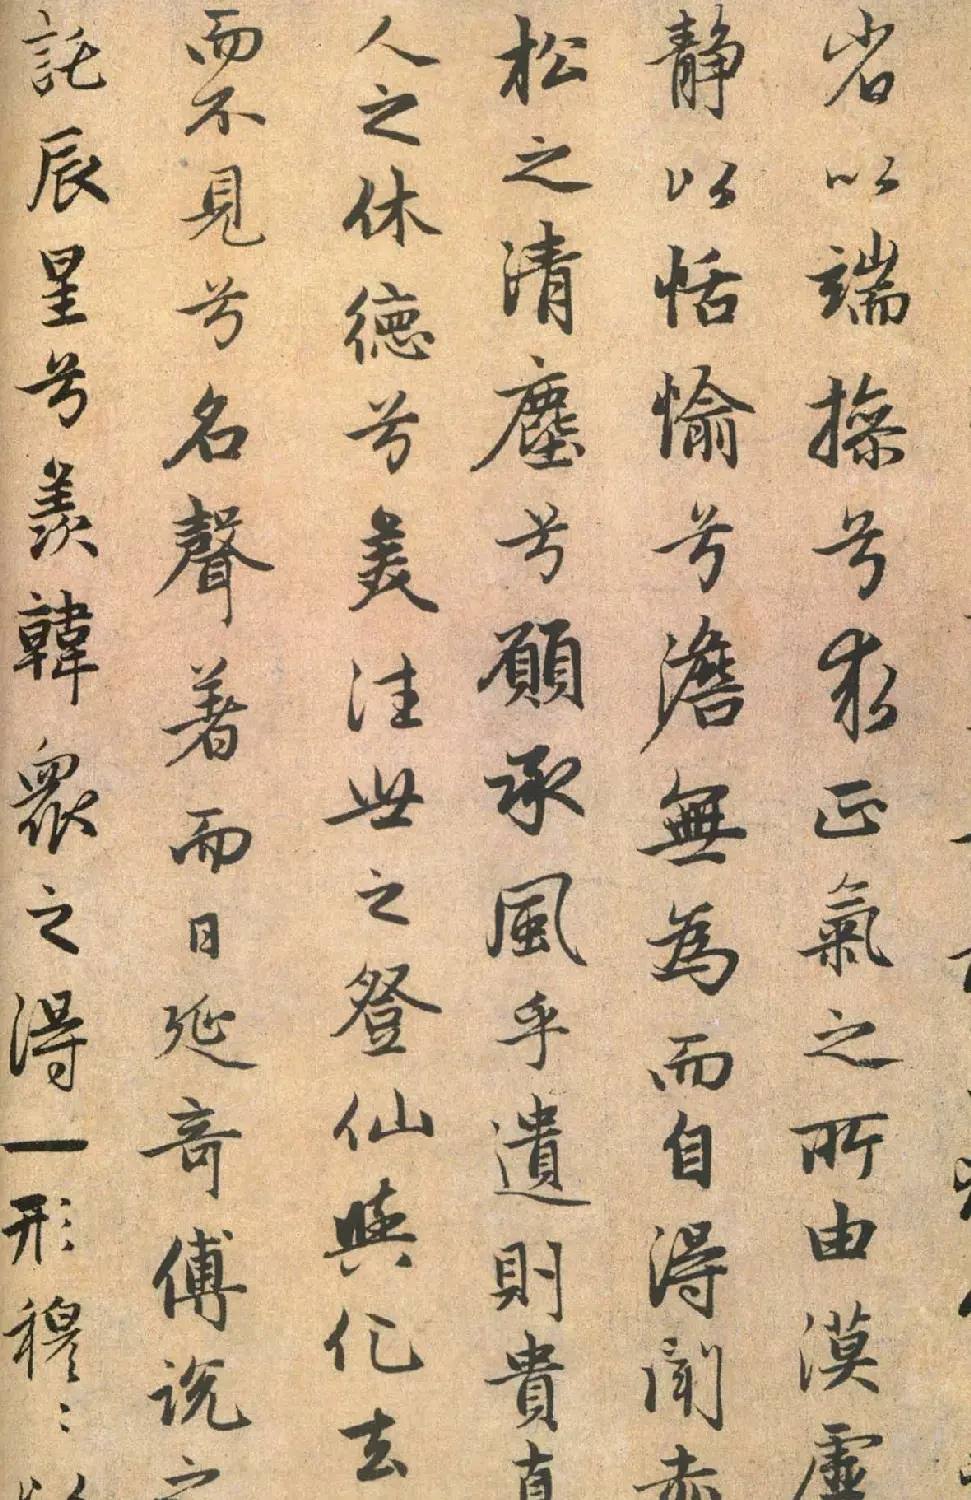 省以端操兮求正氣之所由漠虛
静以恬愉兮澹無為而自得聞赤
松之清塵兮願承風乎遺則貴真
人之休德兮美往世之登仙與化去
而不見兮名聲著而日延奇傅說之
託辰星兮羨韓衆之得一形穆〻以